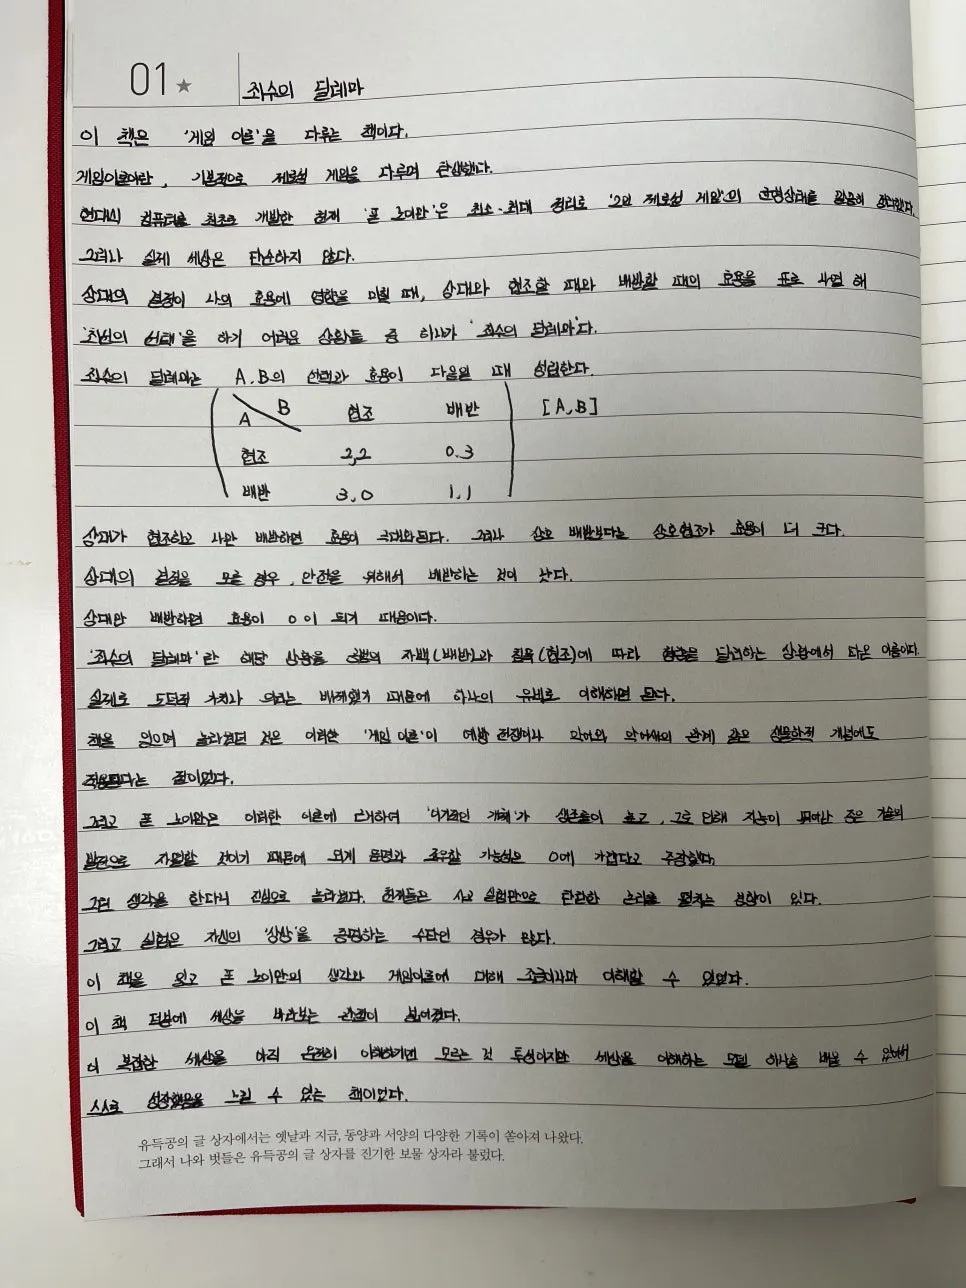 01★ 죄수의 딜레마
이 책은 '게임 이론'을 다루는 책이다.
게임이론이란, 기본적으로 제로섬 게임을 다루며 탄생했다.
현대식 컴퓨터를 최초로 개발한 천재 '폰 노이만'은 최소-최대 정리로 '2인 제로섬 게임'의 균형상태를 완벽히
그러나 실제 세상은 단순하지 않다.
상대의 결정이 나의 효용에 영향을 미칠 때, 상대와 협조할 때와 배반할 때의 효용을 표로 해
'최선의 선택'을 하기 어려운 상황들 중 하나가 '죄수의 딜레마'다.
죄수의 딜레마는 A, B의 선택과 효용이 다음일 때 성립한다.
A B 협조 배반 [A, B]
협조 2,2 0.3
배반 3,0 1,1
상대가 협조하고 나만 배반하면 효용이 극대화된다. 그러나 상호 배반보다는 상호협조가 효용이 더 크다.
상대의 결정을 모를 경우, 안전을 위해서 배반하는 것이 낫다.
상대만 배반하면 효용이 0이 되기 때문이다.
'죄수의 딜레마'란 해당 상황을 자백(배반)과 침묵(협조)에 따라 형량을 달리하는 상황에서 따온 이름이다.
실제로 도덕적 가치나 의리는 배제했기 때문에 하나의 유비로 이해하면 된다.
책을 읽으며 놀라웠던 것은 이러한 '게임 이론'이 예방 전쟁이나 악어와 악어새의 관계 같은 생물학적 개념에도
적용된다는 점이었다.
그리고 폰 노이만은 이러한 이론에 근거하여 '이기적인 개체'가 생존율이 높고, 그로 인해 지능이 뛰어난 종은 기술의
발전으로 자멸할 것이기 때문에 외계 문명과 조우할 가능성은 0에 가깝다고 주장했다.
그런 생각을 한다니 진심으로 놀라웠다. 천재들은 사고 실험만으로 탄탄한 논리를 펼치는 경향이 있다.
그리고 실험은 자신의 '상상'을 증명하는 수단인 경우가 많다.
이 책을 읽고 폰 노이만의 생각과 게임이론에 대해 조금이나마 이해할 수 있었다.
이 책 덕분에 세상을 바라보는 관점이 넓어졌다.
이 복잡한 세상을 아직 온전히 이해하기엔 모르는 것 투성이지만 세상을 이해하는 모델 하나를 배울 수 있어서
스스로 성장했음을 느낄 수 있는 책이었다.
유득공의 글 상자에서는 옛날과 지금, 동양과 서양의 다양한 기록이 쏟아져 나왔다.
그래서 나와 벗들은 유득공의 글 상자를 진기한 보물 상자라 불렀다.